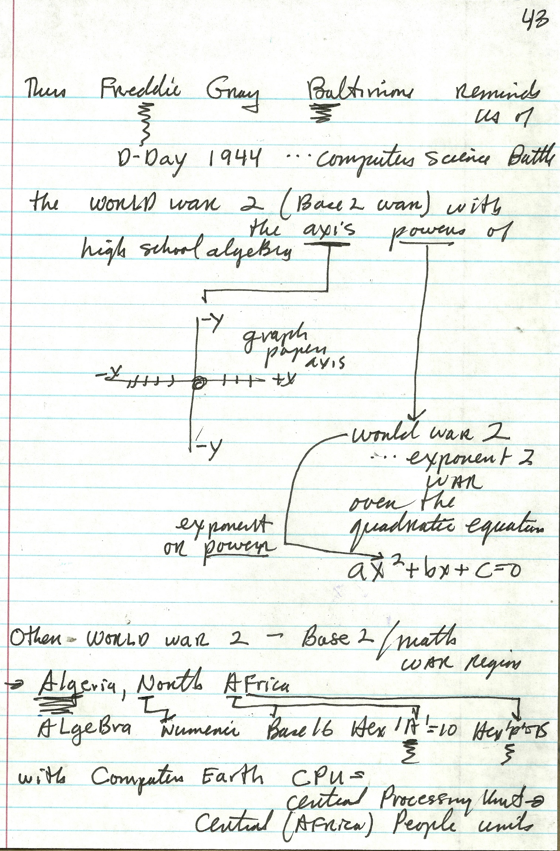 43
Thus Freddie Gray Baltimore reminds
us of
D-Day 1944 ... computer science Battle
the WORLD WAR 2 (Base 2 war) with
the axis powers of
high school algebra
-y
graph
paper
axis
-x +x
-y
world war 2
... exponent 2
WAR
over the
quadratic equation
exponent
or power
ax²+bx+c=0
Other - WORLD WAR 2 - Base 2/math
WAR Region
→ Algeria, North Africa
ALgeBra Numeric Base 16 Hex 'A'=10 Hex 'F'=15
with Computer Earth CPU=
central Processing Unit→
Central (AFRICA) People units